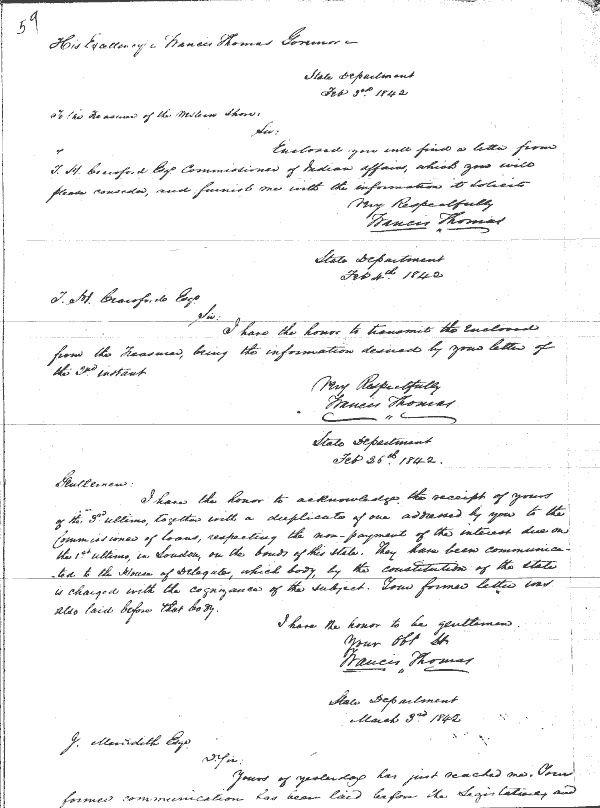 59
His Excellency Francis Thomas Governor
State Department
Feb 3rd 1842
To the Treasurer of the Western Shore:
Sir:
Enclosed you will find a letter from
T. H. Crawford Esqr Commissioner of Indian affairs, which you will
please consider, and furnish me with the information it solicits
Very Respectfully
Francis Thomas
State Department
Feb 4th 1842
T. H. Crawford Esqr
Sir:
I have the honor to transmit the Enclosed
from the Treasurer, being the information desired by your letter of
the 2nd instant
Very Respectfully
Francis Thomas
State Department
Feb 26th 1842.
Gentlemen:
I have the honor to acknowledge the receipt of yours
of the 3rd ultimo, together with a duplicate of one addressed by you to the
Commissioner of loans, respecting the non-payment of the interest due on
the 1st ultimo, in London, on the bonds of this state. They have been communica-
-ted to the House of Delegates, which body, by the constitution of the state
is charged with the cognizance of the subject. Your former letter was
also laid before that body.
I have the honor to be gentlemen
Your Obt St.
Francis Thomas
State Department
March 3rd 1842
J. Meredith Esqr
Sir:
Yours of yesterday has just reached me. Your
former communication has been laid before the Legislature, and